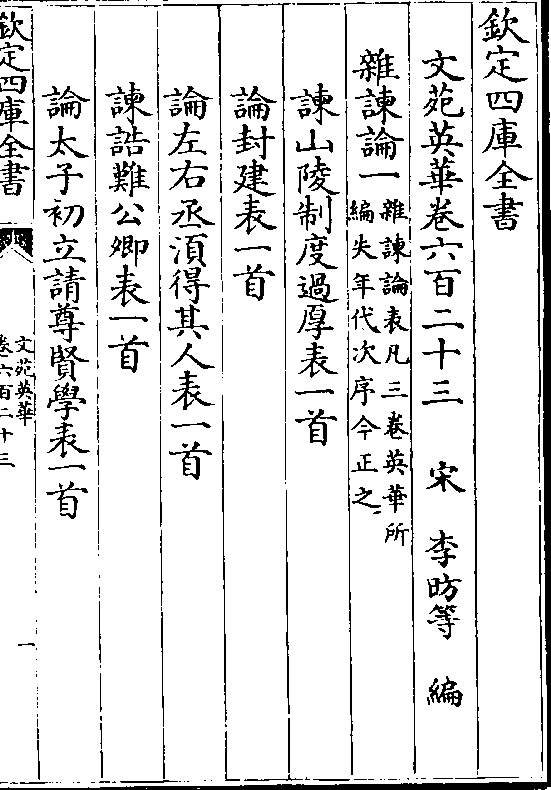 欽定四庫全書
文苑英華卷六百二十三 宋 李昉等 編
雜諫論一 雜諫論表凡三卷英華所
編失年代次序今正之
諫山陵制度過厚表一首
論封建表一首
論左右丞須得其人表一首
諫誥難公卿表一首
論太子初立請尊賢學表一首
欽定四庫全書
文苑英華
卷六百二十三
一